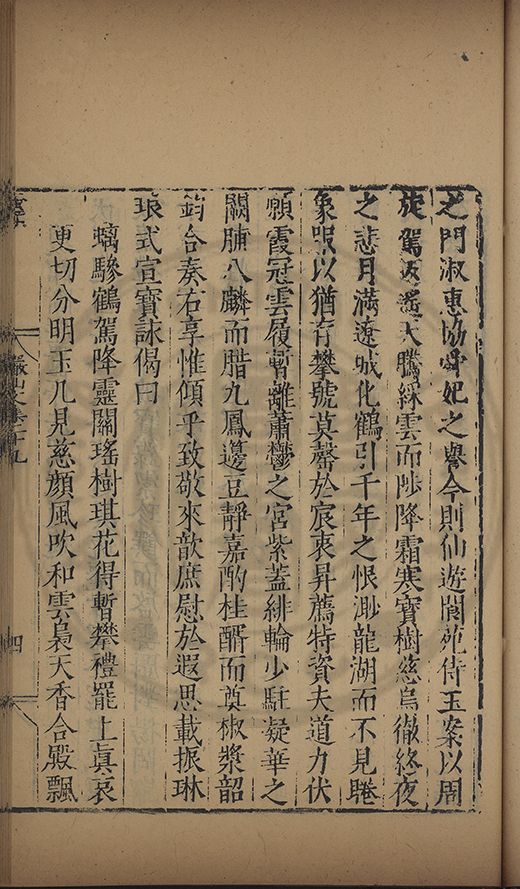 之門淑惠協舜妃之譽今則仙遊閬苑侍玉案以周
旋駕返瑤天騰綵雲而陟降霜寒寶樹慈烏徹終夜
之悲月滿遼城化鶴引千年之恨渺龍湖而不見睠
象服以猶存攀號莫罄於宸衷昇薦特資夫道力伏
願霞冠雲履暫離蕭鬱之宮紫蓋緋輪少駐凝華之
闕脯八麟而腊九鳳籩豆靜嘉酌桂醑而奠椒漿韶
鈞合奏右享惟傾乎致敬來歆庶慰於遐思載振琳
琅式宣寶詠偈曰
螭驂鶴駕降靈關瑤樹琪花得暫攀禮罷上眞哀
更切分明玉几見慈顏風吹和雲裊天香合殿飄
山文集十九
四